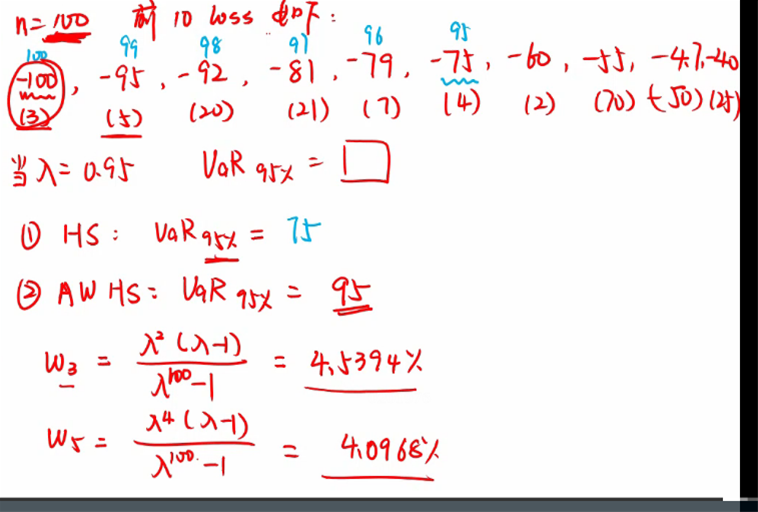 n=100 前10 loss 如下:
100 99 98 97 96 95
-100, -95, -92, -81, -79, -75, -60, -55, -47, -40
(3) (5) (20) (21) (7) (4) (2) (70) (50) (25)
当λ=0.95 VaR 95% = □
① HS: VaR 95% = 75
② AW HS: VaR 95% = 95
W₃ = λ²(λ-1) / λ¹⁰⁰-1 = 4.5394%
W₅ = λ⁴(λ-1) / λ¹⁰⁰-1 = 4.0968%